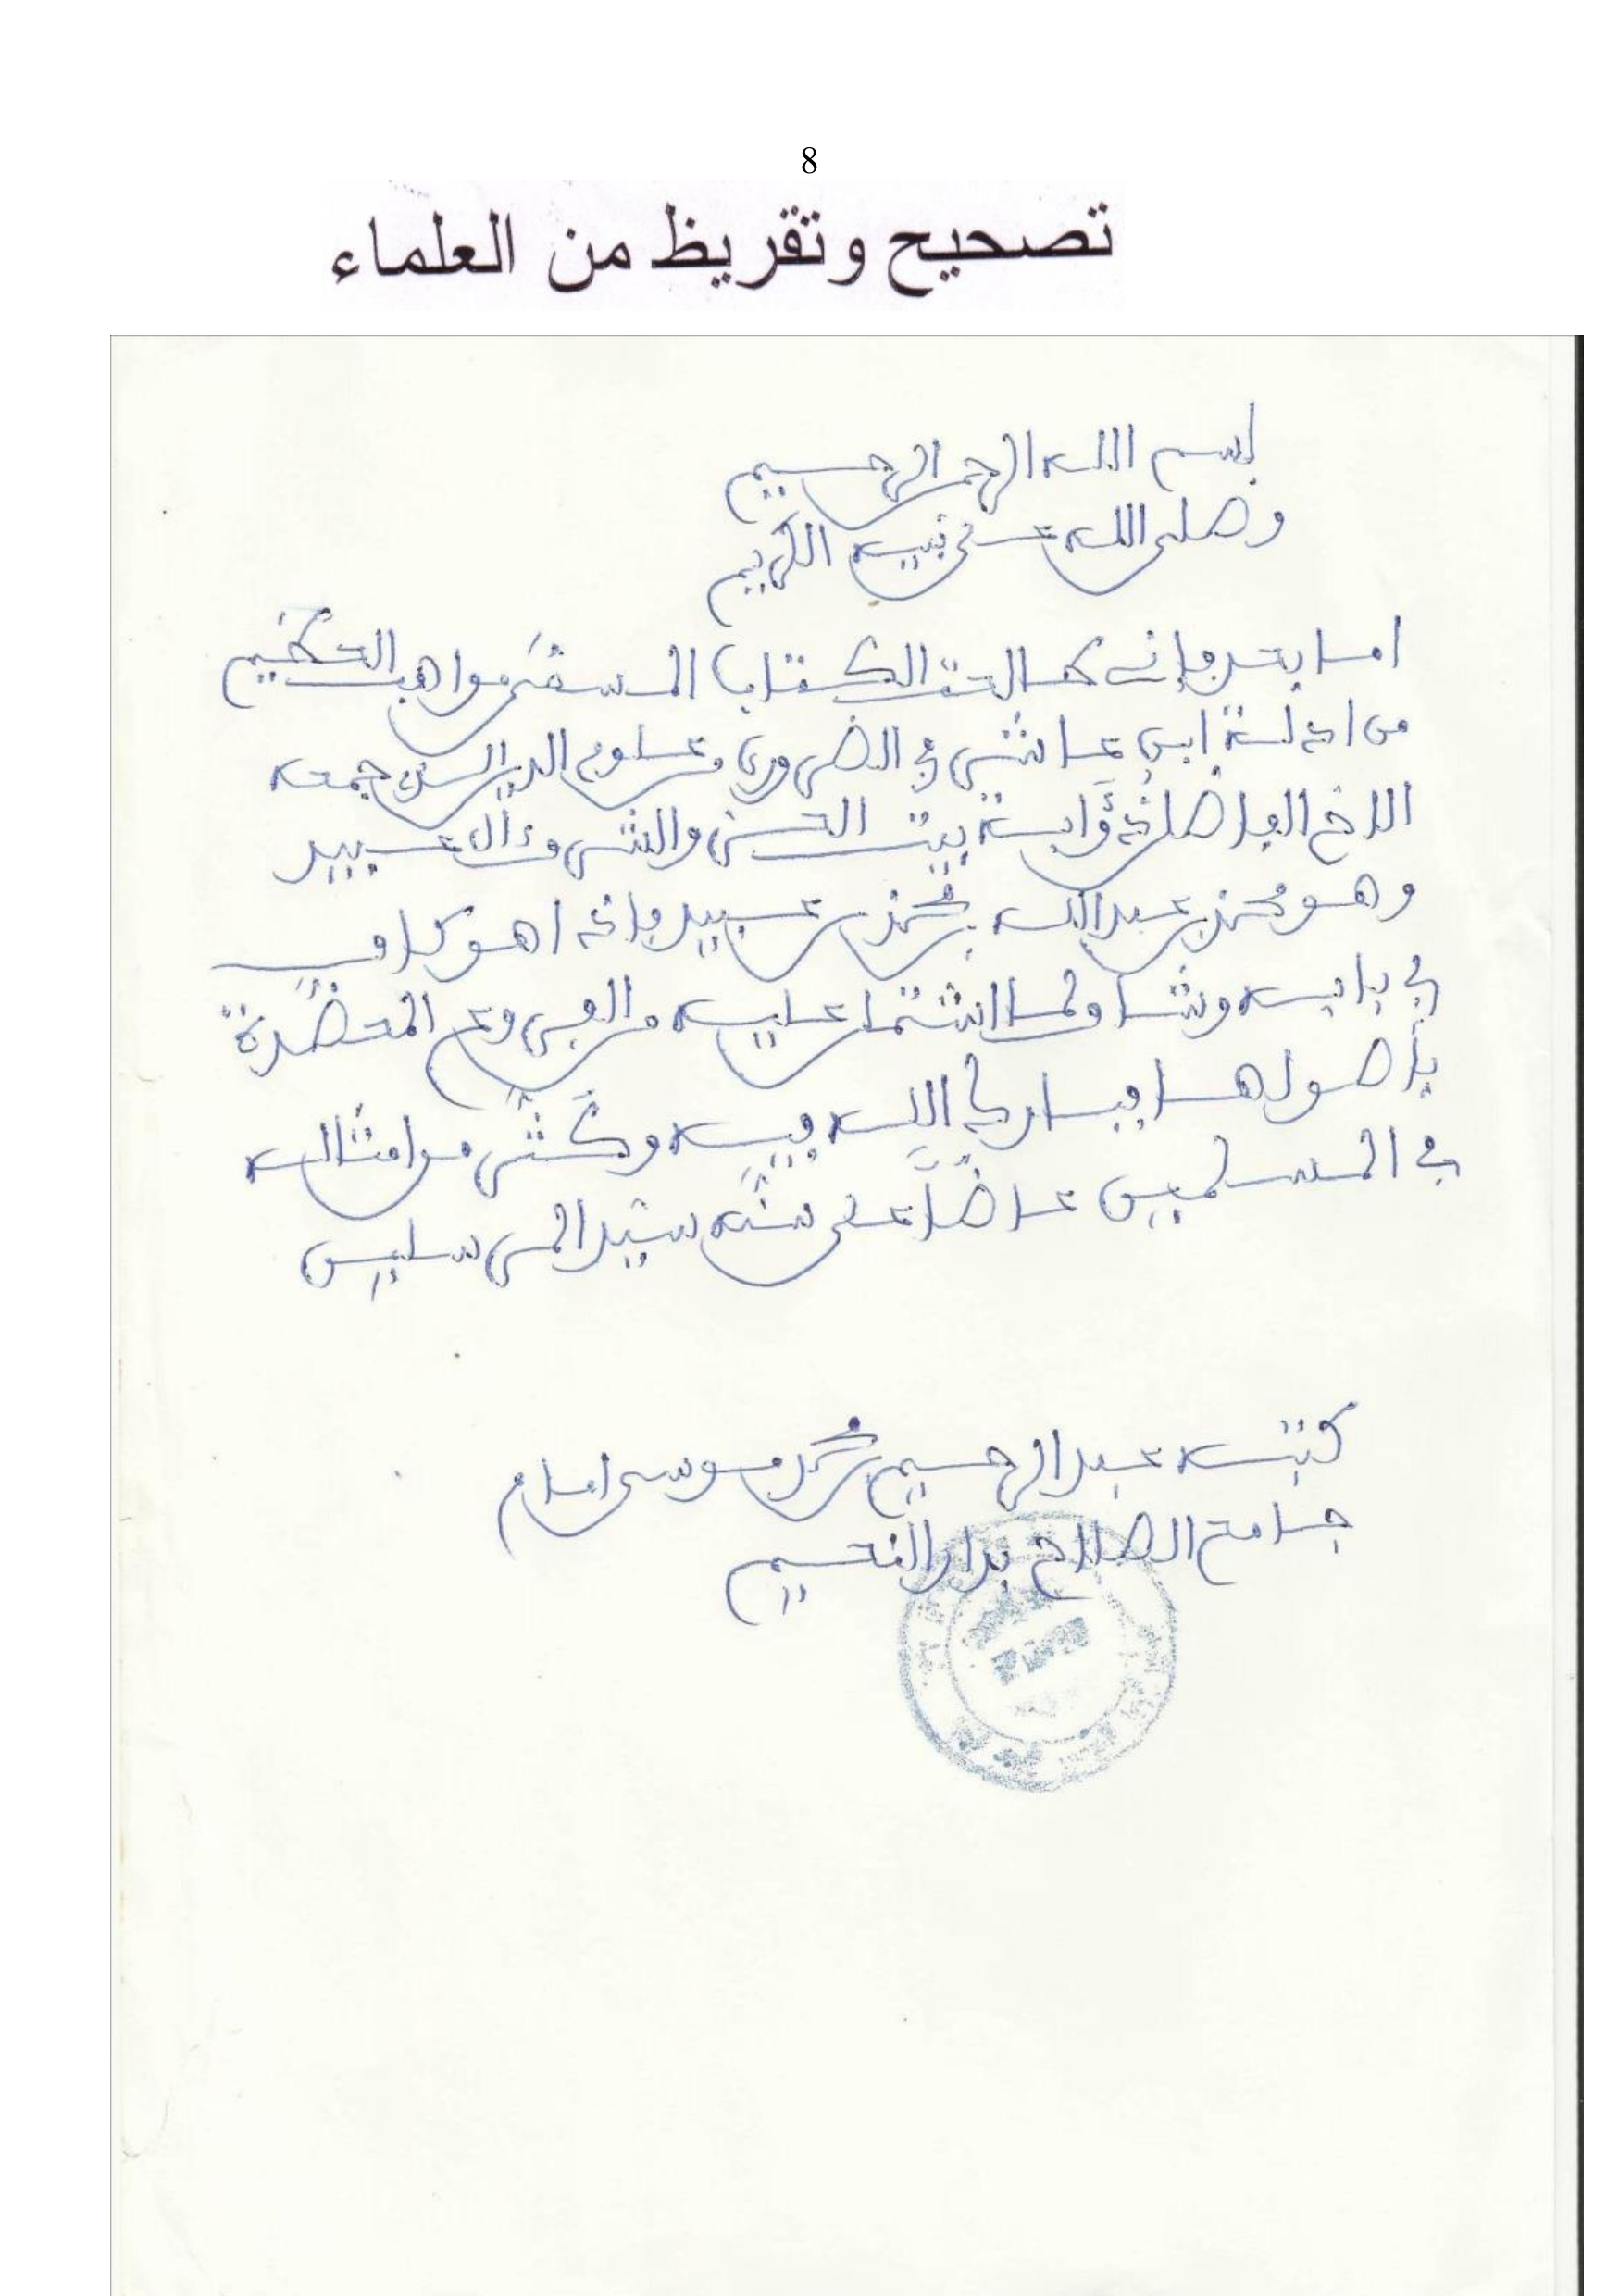 8
تصحيح وتقريظ من العلماء
بسم الله الرحمن الرحيم
وصلى الله على نبيه الكريم
اما بعد فإني طالعت الكتاب المسمى مواهب الحكيم
من ادلة ابن عاشر في الضروري من علوم الدين الذي جمعه
الاخ الفاضل ذؤابة بيت الحسن والشرف ءال عبيد
وهو محمذ بن عبد الله بن محمذ بن عبيد فإذا هو كاف
في بابه وشاف لما اشتمل عليه من الفروع المعضدة
بأصولها فبارك الله فيه وكثر من امثاله
في المسلمين عاضا على سنة سيد المرسلين
كتبه عبد الرحيم بن محمد موسى امام
جامع الصلاح بدار النعيم